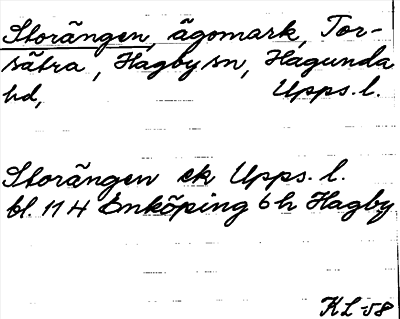 Storängen, ägomark, Tor-
sätra, Hagby sn, Hagunda
hd, Upps. l.
Storängen ek Upps. l.
bl. 11 H Enköping 6 h Hagby
KL -58